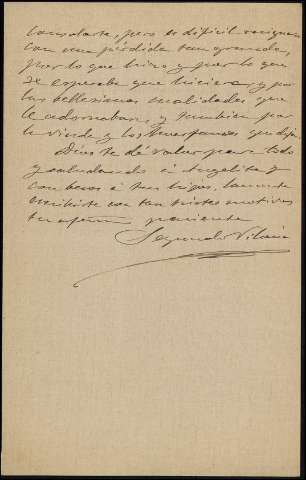 Consolarte, pero es difícil resignarse
con una pérdida tan grande,
por lo que hizo y por lo que
se esperaba que hiciera, y por
las bellísimas cualidades que
le adornaban, y tambien por
la viuda y los huerfanos que deja.
Dios te dé valor para todo
y saludando á Angelita y
con besos á tus hijos, lamenta
escribirte con tan tristes motivos
tu afmo pariente
Segundo